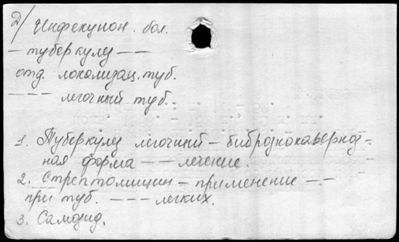 2/ Инфекцион. бол.
— туберкулез — —
отд. локализац. туб.
— — — легочный туб.
1. Туберкулез легочный — фибрознокаверноз-
ная форма — — лечение.
2. Стрептомицин — применение — —
при туб. — — — легких.
3. Самодид.